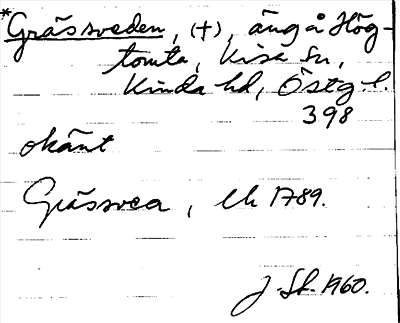 *Grässveden, (†), äng å Hög-
tomta, Kisa sn,
Kinda hd, Östg.l.
398
okänt
Grässvea, lh 1789.
J. Sk. 1960.